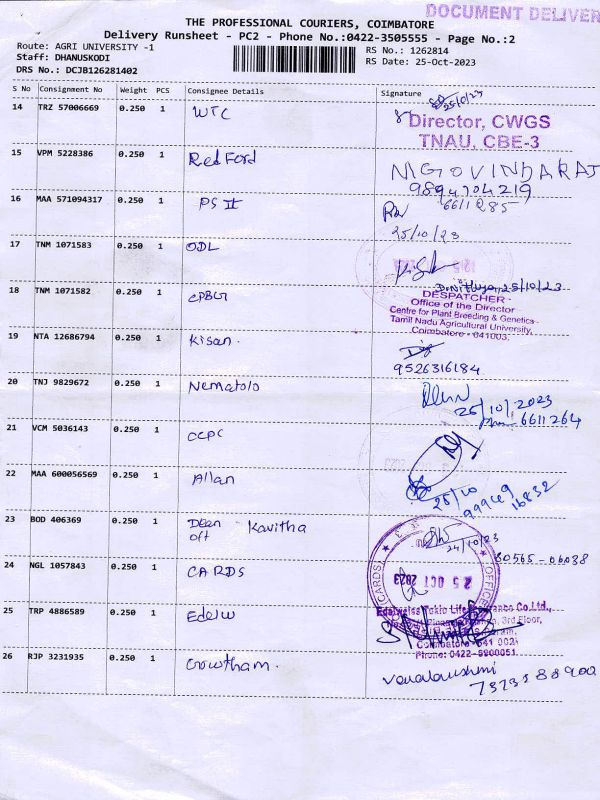 DOCUMENT DELIVER
THE PROFESSIONAL COURIERS, COIMBATORE
Delivery Runsheet - PC2 - Phone No.:0422-3505555 - Page No.:2
Route: AGRI UNIVERSITY -1
RS No.: 1262814
Staff: DHANUSKODI
RS Date: 25-Oct-2023
DRS No.: DCJB126281402
S No Consignment No Weight PCS Consignee Details Signature
25/10/23
14 TRZ 57006669 0.250 1 WTC
Director, CWGS
TNAU, CBE-3
15 VPM 5228386 0.250 1 RedFord
M GOVINDARAJ
9894704219
16 MAA 571094317 0.250 1 PS II
6611285
25/10/23
17 TNM 1071583 0.250 1 ODL
25/10/23
18 TNM 1071582 0.250 1 CPBG
DESPATCHER
Office of the Director
Centre for Plant Breeding & Genetics
Tamil Nadu Agricultural University,
Coimbatore - 641003.
19 NTA 12686794 0.250 1 Kisan.
9526316184
20 TNJ 9829672 0.250 1 Nematolo
25/10/2023
6611264
21 VCM 5036143 0.250 1 CCPC
22 MAA 600056569 0.250 1 Allan
25/10
99949
16832
23 BOD 406369 0.250 1 Dean Kavitha
off
24/10/23
80565-06038
24 NGL 1057843 0.250 1 CARDS
25 OCT 2023
25 TRP 4886589 0.250 1 Edelw
Edelweiss Tokio Life Insurance Co.Ltd.,
3rd Floor,
Phone: 0422-6600051.
26 RJP 3231935 0.250 1 Gowtham.